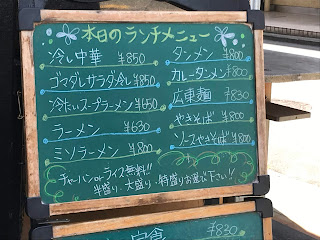 本日のランチメニュー
冷し中華 ¥850
ゴマダレサラダ冷し ¥850
冷たいスープラーメン ¥650
ラーメン ¥630
ミソラーメン ¥800
タンメン ¥800
カレータンメン ¥800
広東麺 ¥830
やきそば ¥800
ソースやきそば ¥800
チャーハンorライス無料!!
半盛り・大盛り・特盛りお選び下さい!!
定食 ¥830